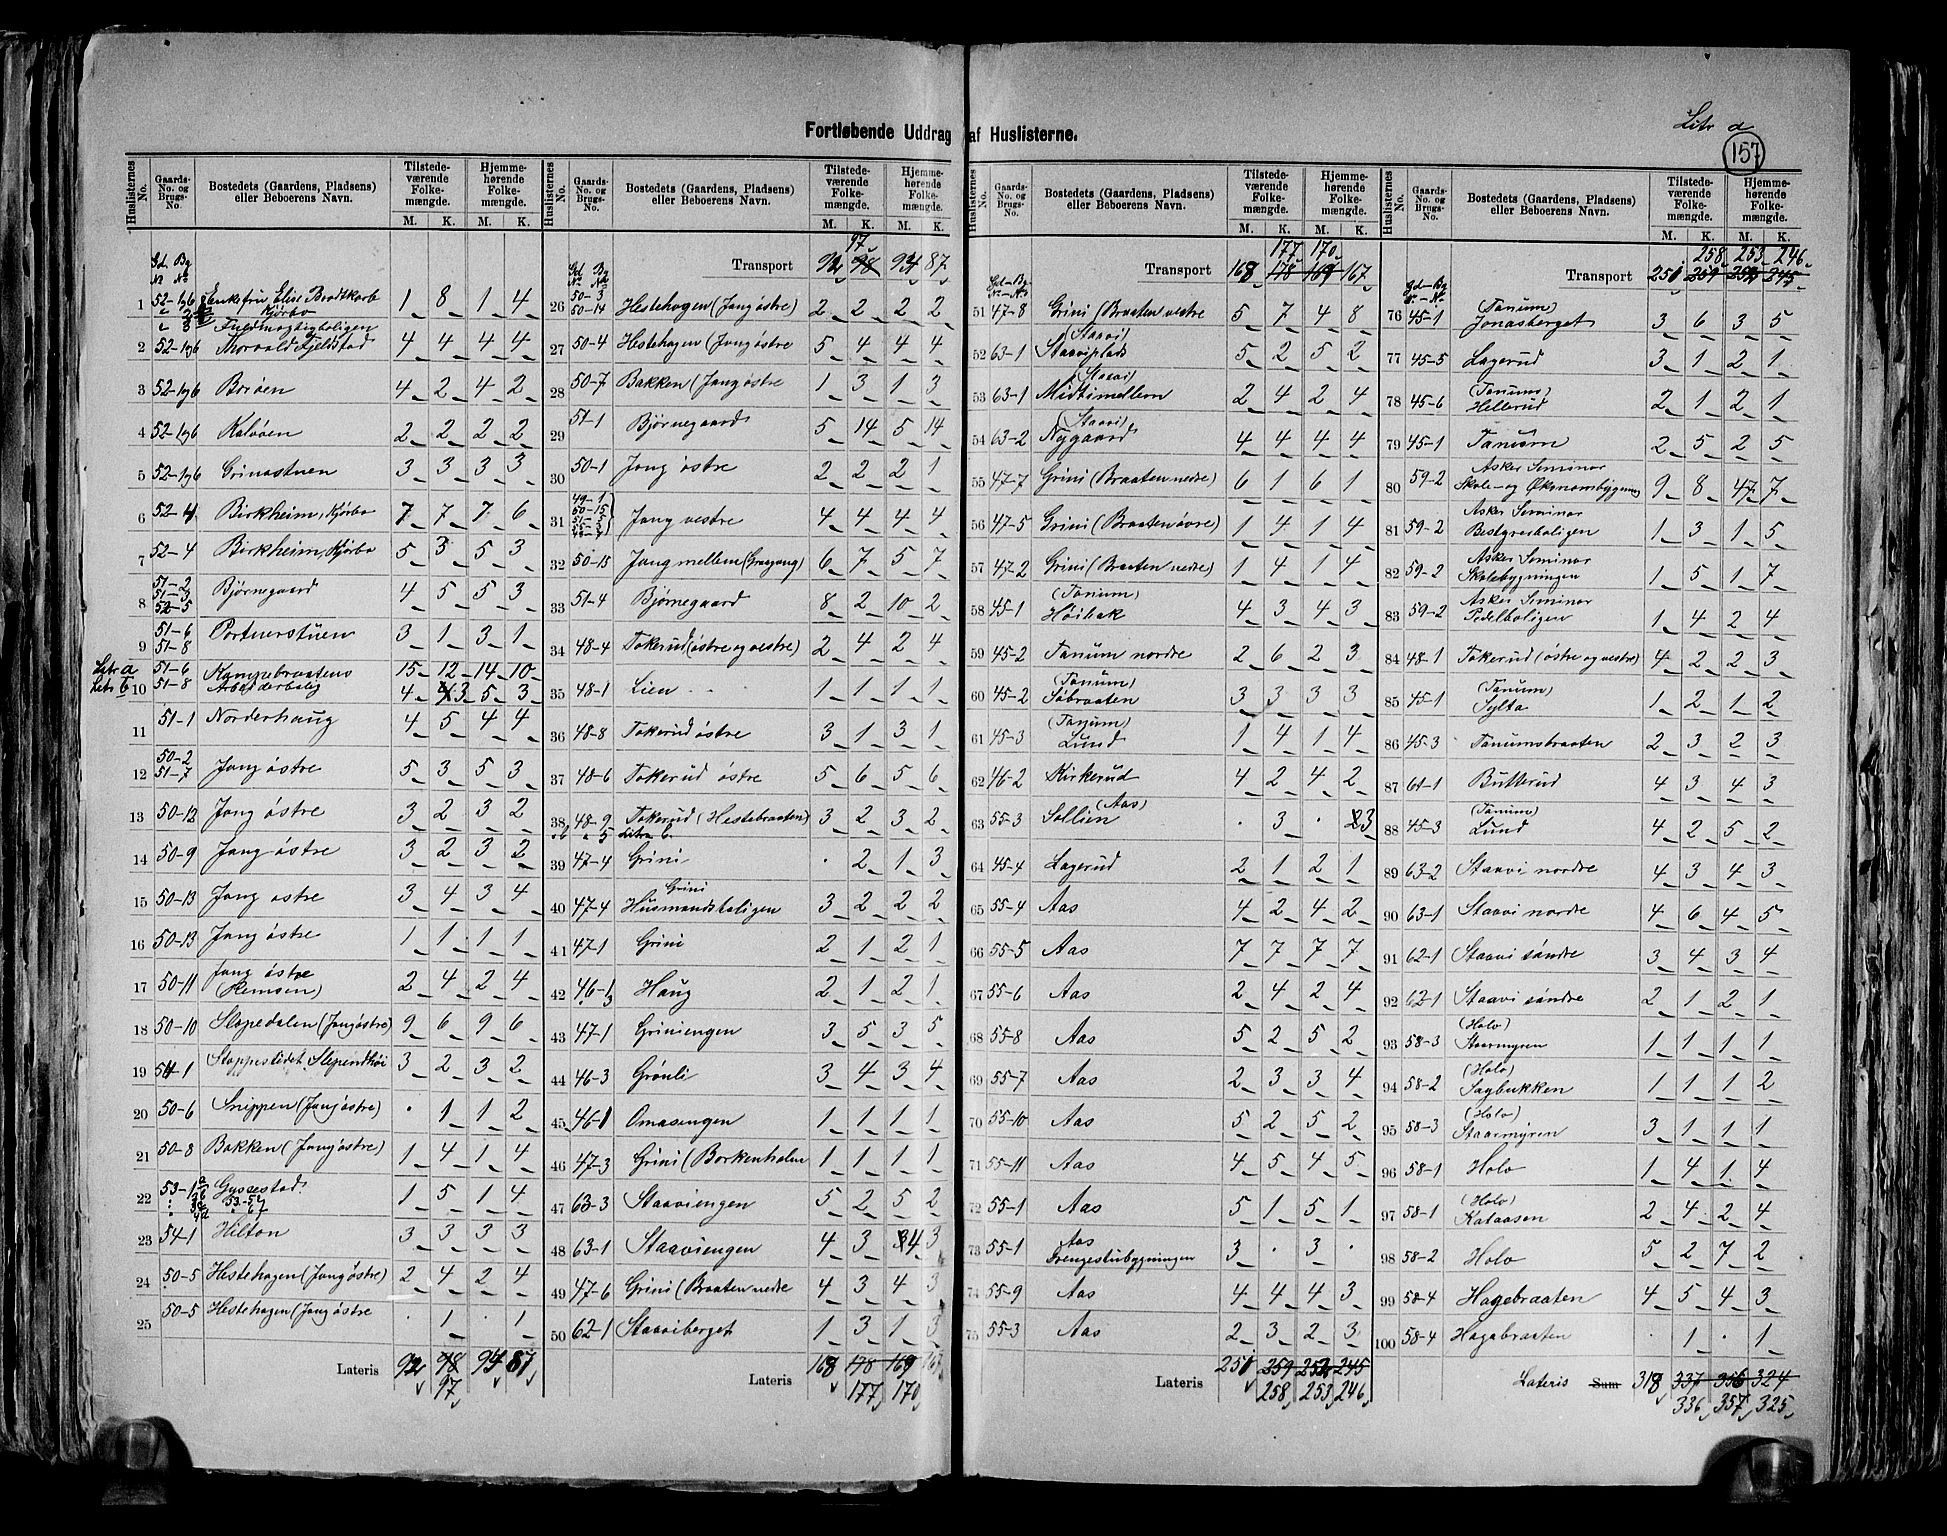 Litr a
157
Fortløbende Uddrag af Huslisterne.
Huslisternes No. | Gaards-No. og Brugs-No. | Bostedets (Gaardens, Pladsens) eller Beboerens Navn. | Tilstedeværende Folkemængde. M. K. | Hjemmehørende Folkemængde. M. K.
Gd. Bg
No No
1 52-1og6 Enkefru Elise Brodtkorb Kjørbo 1 8 1 4
2 52-1og6 Fuldmægtigboligen Thorvald Fjeldstad 4 4 4 4
3 52-1og6 Borøen 4 2 4 2
4 52-1og6 Kalvøen 2 2 2 2
5 52-1og6 Grinastuen 3 3 3 3
6 52-4 Birkheim, Kjørbo 7 7 7 6
7 52-4 Birkheim, Kjørbo 5 3 5 3
8 51-2 51-3 52-5 Bjørnegaard 4 5 5 3
9 51-6 51-8 Portnerstuen 3 1 3 1
Litr a 51-6 Kampebraatens 15 12 14 10
Litr b 10 51-8 Arbeiderbolig 4 3 5 3
11 51-1 Norderhaug 4 5 4 4
12 50-2 51-7 Jong østre 5 3 5 3
13 50-12 Jong østre 3 2 3 2
14 50-9 Jong østre 3 2 3 2
15 50-13 Jong østre 3 4 3 4
16 50-13 Jong østre 1 1 1 1
17 50-11 Jong østre (Remsen) 2 4 2 4
18 50-10 Slopedalen (Jongøstre) 9 6 9 6
19 54-1 Stoppestedet Slependhøi 3 2 3 2
20 50-6 Snippen (Jongøstre) . 1 1 2
21 50-8 Bakken (Jongøstre) 1 4 1 4
22 53-1 Gyssestad 1 5 1 4
23 54-1 Hilton 3 3 3 3
24 50-5 Hestehagen (Jongøstre) 2 4 2 4
25 50-5 Hestehagen (Jongøstre . 1 . 1
Lateris 92 98 94 87
97
Huslisternes No. | Gaards-No. og Brugs-No. | Bostedets (Gaardens, Pladsens) eller Beboerens Navn. | Tilstedeværende Folkemængde. M. K. | Hjemmehørende Folkemængde. M. K.
97
Gd. Bg
No No
Transport 92 98 94 87
26 50-3 50-14 Hestehagen (Jongøstre) 2 2 2 2
27 50-4 Hestehagen (Jongøstre 5 4 4 4
28 50-7 Bakken (Jongøstre 1 3 1 3
29 51-1 Bjørnegaard 5 14 5 14
30 50-1 Jong østre 2 2 2 1
31 49-1 50-15 Jong vestre 4 4 4 4
32 50-15 Jong mellem (Graajong) 6 7 5 7
33 51-4 Bjørnegaard 8 2 10 2
34 48-4 Tokerud (østre og vestre) 2 4 2 4
35 48-1 Lien 1 1 1 1
36 48-8 Tokerud østre 3 1 3 1
37 48-6 Tokerud østre 5 6 5 6
38 48-9 Tokerud (Hestebraaten) 3 2 3 2
39 47-4 Grini . 2 1 3
40 47-4 Grini Husmandsboligen 3 2 2 2
41 47-1 Grini 2 1 2 1
42 46-1 3 Haug 2 1 2 1
43 47-1 Griniengen 3 5 3 5
44 46-3 Grønli 3 4 3 4
45 46-1 Omasengen 1 1 1 1
46 47-3 Grini (Borkenholm 1 1 1 1
47 63-3 Staaviengen 5 2 5 2
48 63-1 Staaviengen 4 3 4 3
49 47-6 Grini (Braaten nedre 4 3 4 3
50 62-1 Staaviberget 1 3 1 3
Lateris 168 178 169 167
177 170
Huslisternes No. | Gaards-No. og Brugs-No. | Bostedets (Gaardens, Pladsens) eller Beboerens Navn. | Tilstedeværende Folkemængde. M. K. | Hjemmehørende Folkemængde. M. K.
177 170
Gd-Bg
No-No
Transport 168 178 169 167
51 47-8 Grini (Braaten vestre 5 7 4 8
52 63-1 (Staavi) Staaviplads 5 2 5 2
53 63-1 (Staavi) Midtimellem 2 4 2 4
54 63-2 (Staavi) Nygaard 4 4 4 4
55 47-7 Grini (Braaten nedre) 6 1 6 1
56 47-5 Grini (Braaten øvre) 1 4 1 4
57 47-2 Grini (Braaten nedre) 1 4 1 4
58 45-1 (Tanum) Høibak 4 3 4 3
59 45-2 Tanum nordre 2 6 2 3
60 45-2 (Tanum) Søbraaten 3 3 3 3
61 45-3 (Tanum) Lund 1 4 1 4
62 46-2 Kirkerud 4 2 4 2
63 55-3 (Aas) Sollien . 3 . 3
64 45-4 Lagerud 2 1 2 1
65 55-4 Aas 4 2 4 2
66 55-5 Aas 7 7 7 7
67 55-6 Aas 2 4 2 4
68 55-8 Aas 5 2 5 2
69 55-7 Aas 2 3 3 4
70 55-10 Aas 5 2 5 2
71 55-11 Aas 4 5 4 5
72 55-1 Aas 5 1 5 1
73 55-1 Aas Drengestubygningen 3 . 3 .
74 55-9 Aas 4 4 4 3
75 55-3 Aas 2 3 2 3
Lateris 251 259 252 245
258 253 246
Huslisternes No. | Gaards-No. og Brugs-No. | Bostedets (Gaardens, Pladsens) eller Beboerens Navn. | Tilstedeværende Folkemængde. M. K. | Hjemmehørende Folkemængde. M. K.
258 253 246
Gd-Bg
No-No
Transport 251 259 252 245
76 45-1 (Tanum) Jonasberget 3 6 3 5
77 45-5 Lagerud 3 1 2 1
78 45-6 (Tanum) Hellerud 2 1 2 1
79 45-1 Tanum 2 5 2 5
80 59-2 Asker Seminar Skole- og Økonomibygning 9 8 47 7
81 59-2 Asker Seminar Bestyrerboligen 1 3 1 5
82 59-2 Asker Seminar Skolebygningen 1 5 1 7
83 59-2 Asker Seminar Pedelboligen 1 4 2 4
84 48-1 Tokerud (østre og vestre) 4 2 2 3
85 45-1 (Tanum) Sylta 1 2 1 2
86 45-3 Tanumsbraaten 2 3 2 3
87 61-1 Butterud 4 3 4 3
88 45-3 (Tanum) Lund 4 2 5 2
89 63-2 Staavi nordre 4 3 4 3
90 63-1 Staavi nordre 4 6 4 5
91 62-1 Staavi søndre 3 4 3 4
92 62-1 Staavi søndre 2 1 2 1
93 58-3 (Holo) Staarmyren 1 1 1 1
94 58-2 (Holo) Sagbukken 1 1 1 2
95 58-3 (Holo) Staarmyren 3 1 1 1
96 58-1 Holo 1 4 1 4
97 58-1 (Holo) Kataasen 2 4 2 4
98 58-2 Holo 5 2 7 2
99 58-4 Hagebraaten 4 5 4 3
100 58-4 Hagebraaten . 1 . 1
Lateris Sum 318 337 356 324
336 357 325